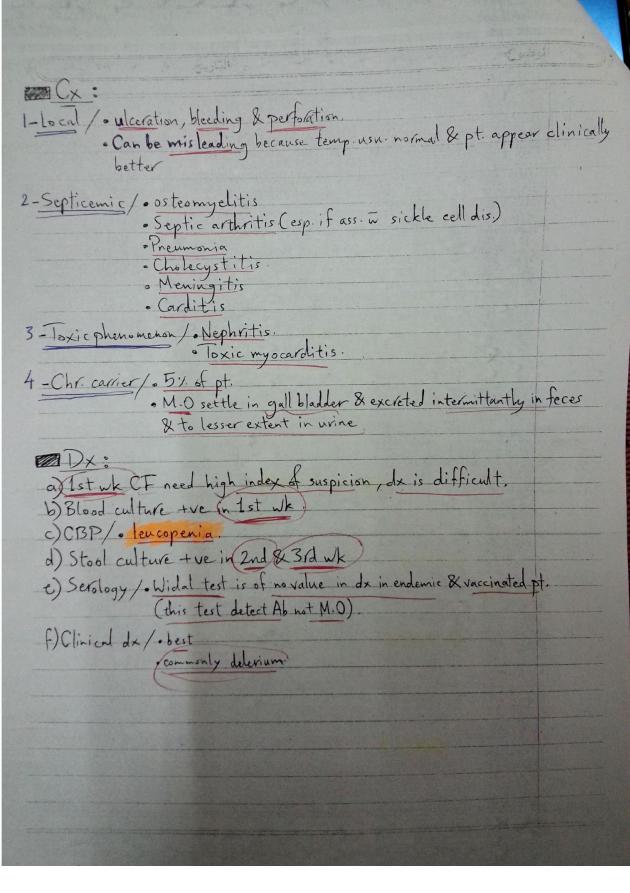 الموضوع
التاريخ
Cx :
1-Local / • ulceration, bleeding & perforation.
• Can be misleading because temp. usu. normal & pt. appear clinically
better
2-Septicemic / • osteomyelitis
• Septic arthritis (esp. if ass. w̄ sickle cell dis.)
• Pneumonia
• Cholecystitis.
• Meningitis
• Carditis
3-Toxic phenomenon / • Nephritis.
• Toxic myocarditis.
4-Chr. carrier / • 5% of pt.
• M.O settle in gall bladder & excreted intermittantly in feces
& to lesser extent in urine
Dx :
a) 1st wk CF need high index of suspicion, dx is difficult.
b) Blood culture +ve in 1st wk
c) CBP / • leucopenia.
d) Stool culture +ve in 2nd & 3rd wk
e) Serology / • Widal test is of no value in dx in endemic & vaccinated pt.
(this test detect Ab not M.O)
f) Clinical dx / • best
• commonly delerium